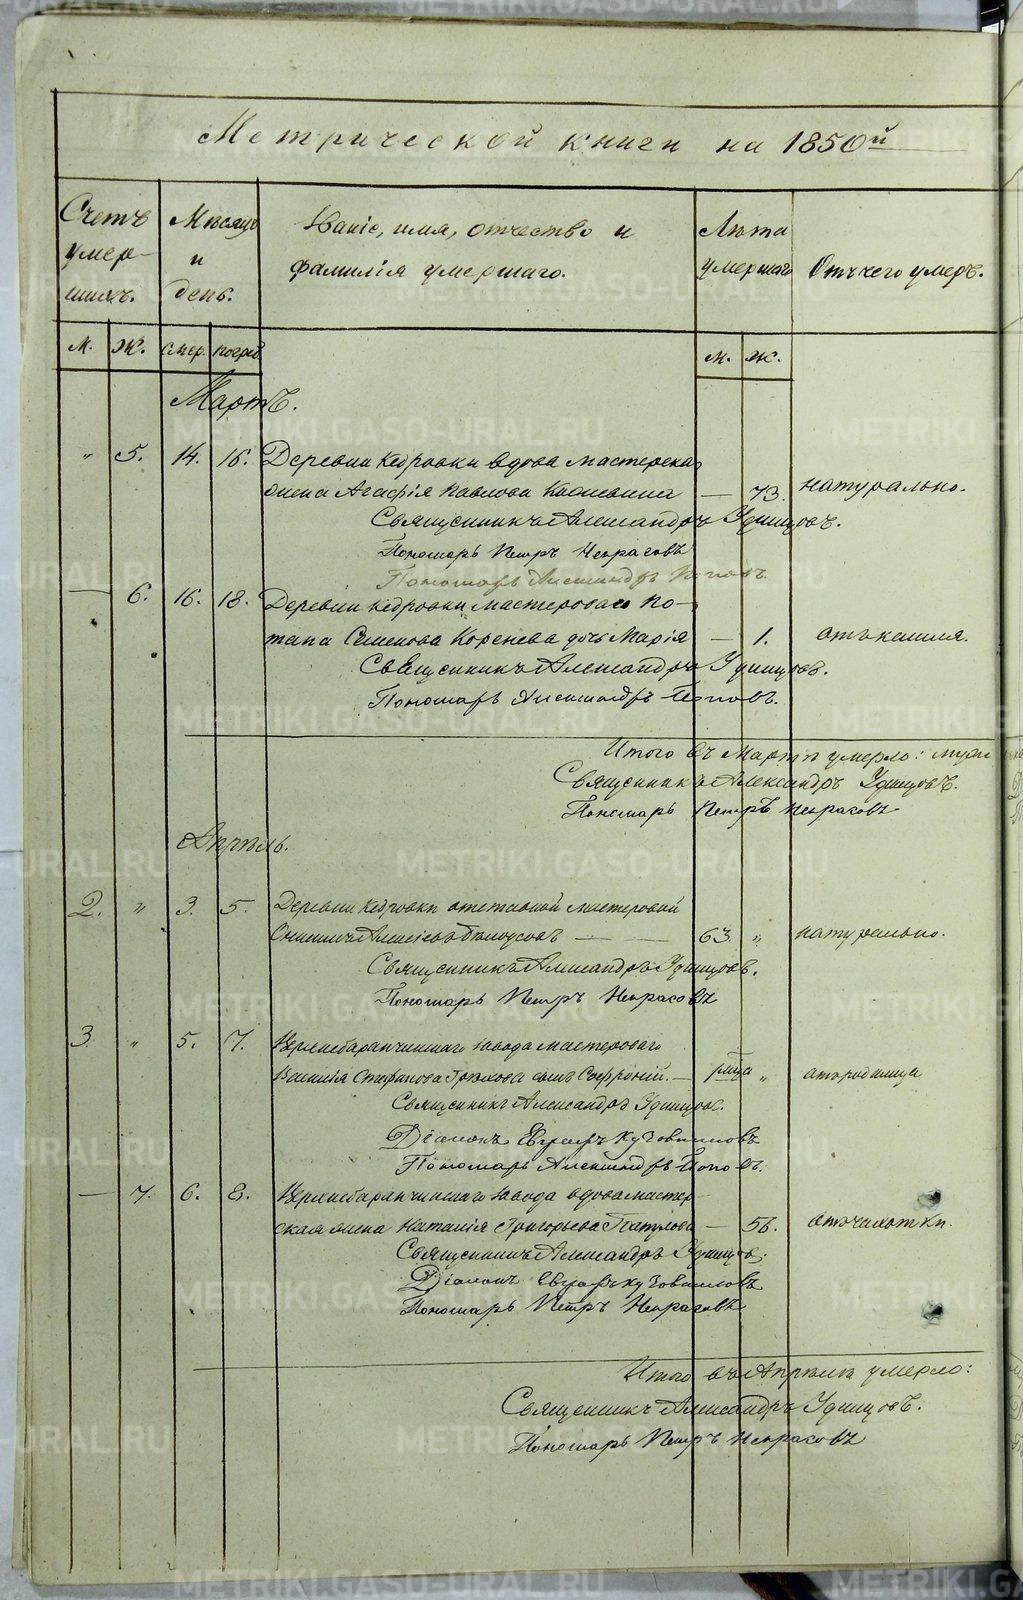 Метрической книги на 1850й
Счетъ умер- шихъ. Мѣсяцъ и день. Званіе, имя, отчество и фамилія умершаго. Лѣта умершаго Отъ чего умеръ.
м. ж. смер. погреб. м. ж.
Мартъ.
" 5. 14. 16. Деревни Кедровки вдова мастерска
жена Агафія Павлова — 73. натурально.
Священникъ Александръ Удинцовъ.
Пономарь Петръ Некрасовъ
Пономарь Александръ Поповъ.
— 6. 16. 18. Деревни Кедровки мастероваго По-
тапа Семенова Коренева дочь Марія — 1. отъ кашля.
Священникъ Александръ Удинцовъ.
Пономарь Александръ Поповъ.
Итого въ Мартѣ умерло: муж
Священникъ Александръ Удинцовъ.
Пономарь Петръ Некрасовъ
Апрѣль.
2. " 3. 5. Деревни Кедровки отставной мастеровой
Алексѣевъ Бѣлоусовъ — — 63. " натурально.
Священникъ Александръ Удинцовъ.
Пономарь Петръ Некрасовъ
3. " 5. 7. Верхнебаранчинскаго завода мастероваго
Василія Стефанова сынъ Софроній. — " отъ родимца
Священникъ Александръ Удинцовъ.
Діаконъ Евграфъ Кузовниковъ
Пономарь Александръ Поповъ.
— 7. 6. 8. Верхнебаранчинскаго завода вдова мастер-
ская жена Наталія Григорьева — 56. отъ чахотки.
Священникъ Александръ Удинцовъ.
Діаконъ Евграфъ Кузовниковъ
Пономарь Петръ Некрасовъ
Итого въ Апрѣлѣ умерло:
Священникъ Александръ Удинцовъ.
Пономарь Петръ Некрасовъ
METRIKI.GASO-URAL.RU